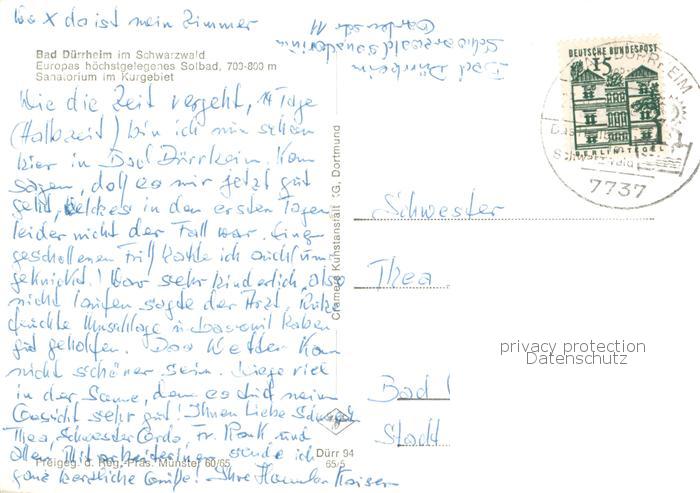 Wo X da ist mein Zimmer
Bad Dürrheim im Schwarzwald
Europas höchstgelegenes Solbad, 700-800 m
Sanatorium im Kurgebiet
Bad Dürrheim
Schwarzwaldsanatorium
Gartenstr 11
Wie die Zeit vergeht, 14 Tage
(Halbzeit) bin ich nun schon
hier in Bad Dürrheim. Kann
sagen, daß es mir jetzt gut
geht, welches in den ersten Tagen
leider nicht der Fall war.
geschollenen Fuß hatte ich auch
geknickt! War sehr hinderlich, also
nicht laufen sagte der Arzt. Ruhe
feuchte Umschläge haben
gut geholfen. Das Wetter kann
nicht schöner sein. Liege viel
in der Sonne, denn es tut mein
Gesicht sehr gut! Ihnen Liebe Schwester
Thea, Schwester Gerda, Fr. und
allen Mitarbeiterinnen sende ich
ganz herzliche Grüße! Ihre Kaiser
Freigeg. d. Reg.-Präs. Münster 60/65
Dürr 94
65/5
Cramers Kunstanstalt KG, Dortmund
DEUTSCHE BUNDESPOST
15
BERLIN-TEGEL
7737
Schwester
Thea
Bad
Stadt
privacy protection
Datenschutz